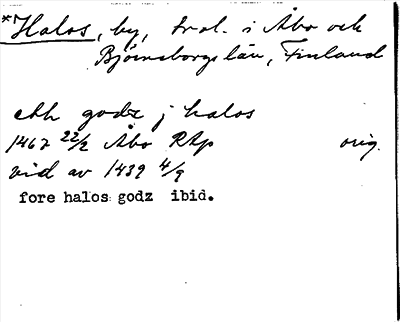 *Halos, by, i Åbo och
Björneborgs län, Finland
ett godz j halos
1467 22/2 Åbo RAp orig.
vid av 1439 4/9
fore halos godz ibid.